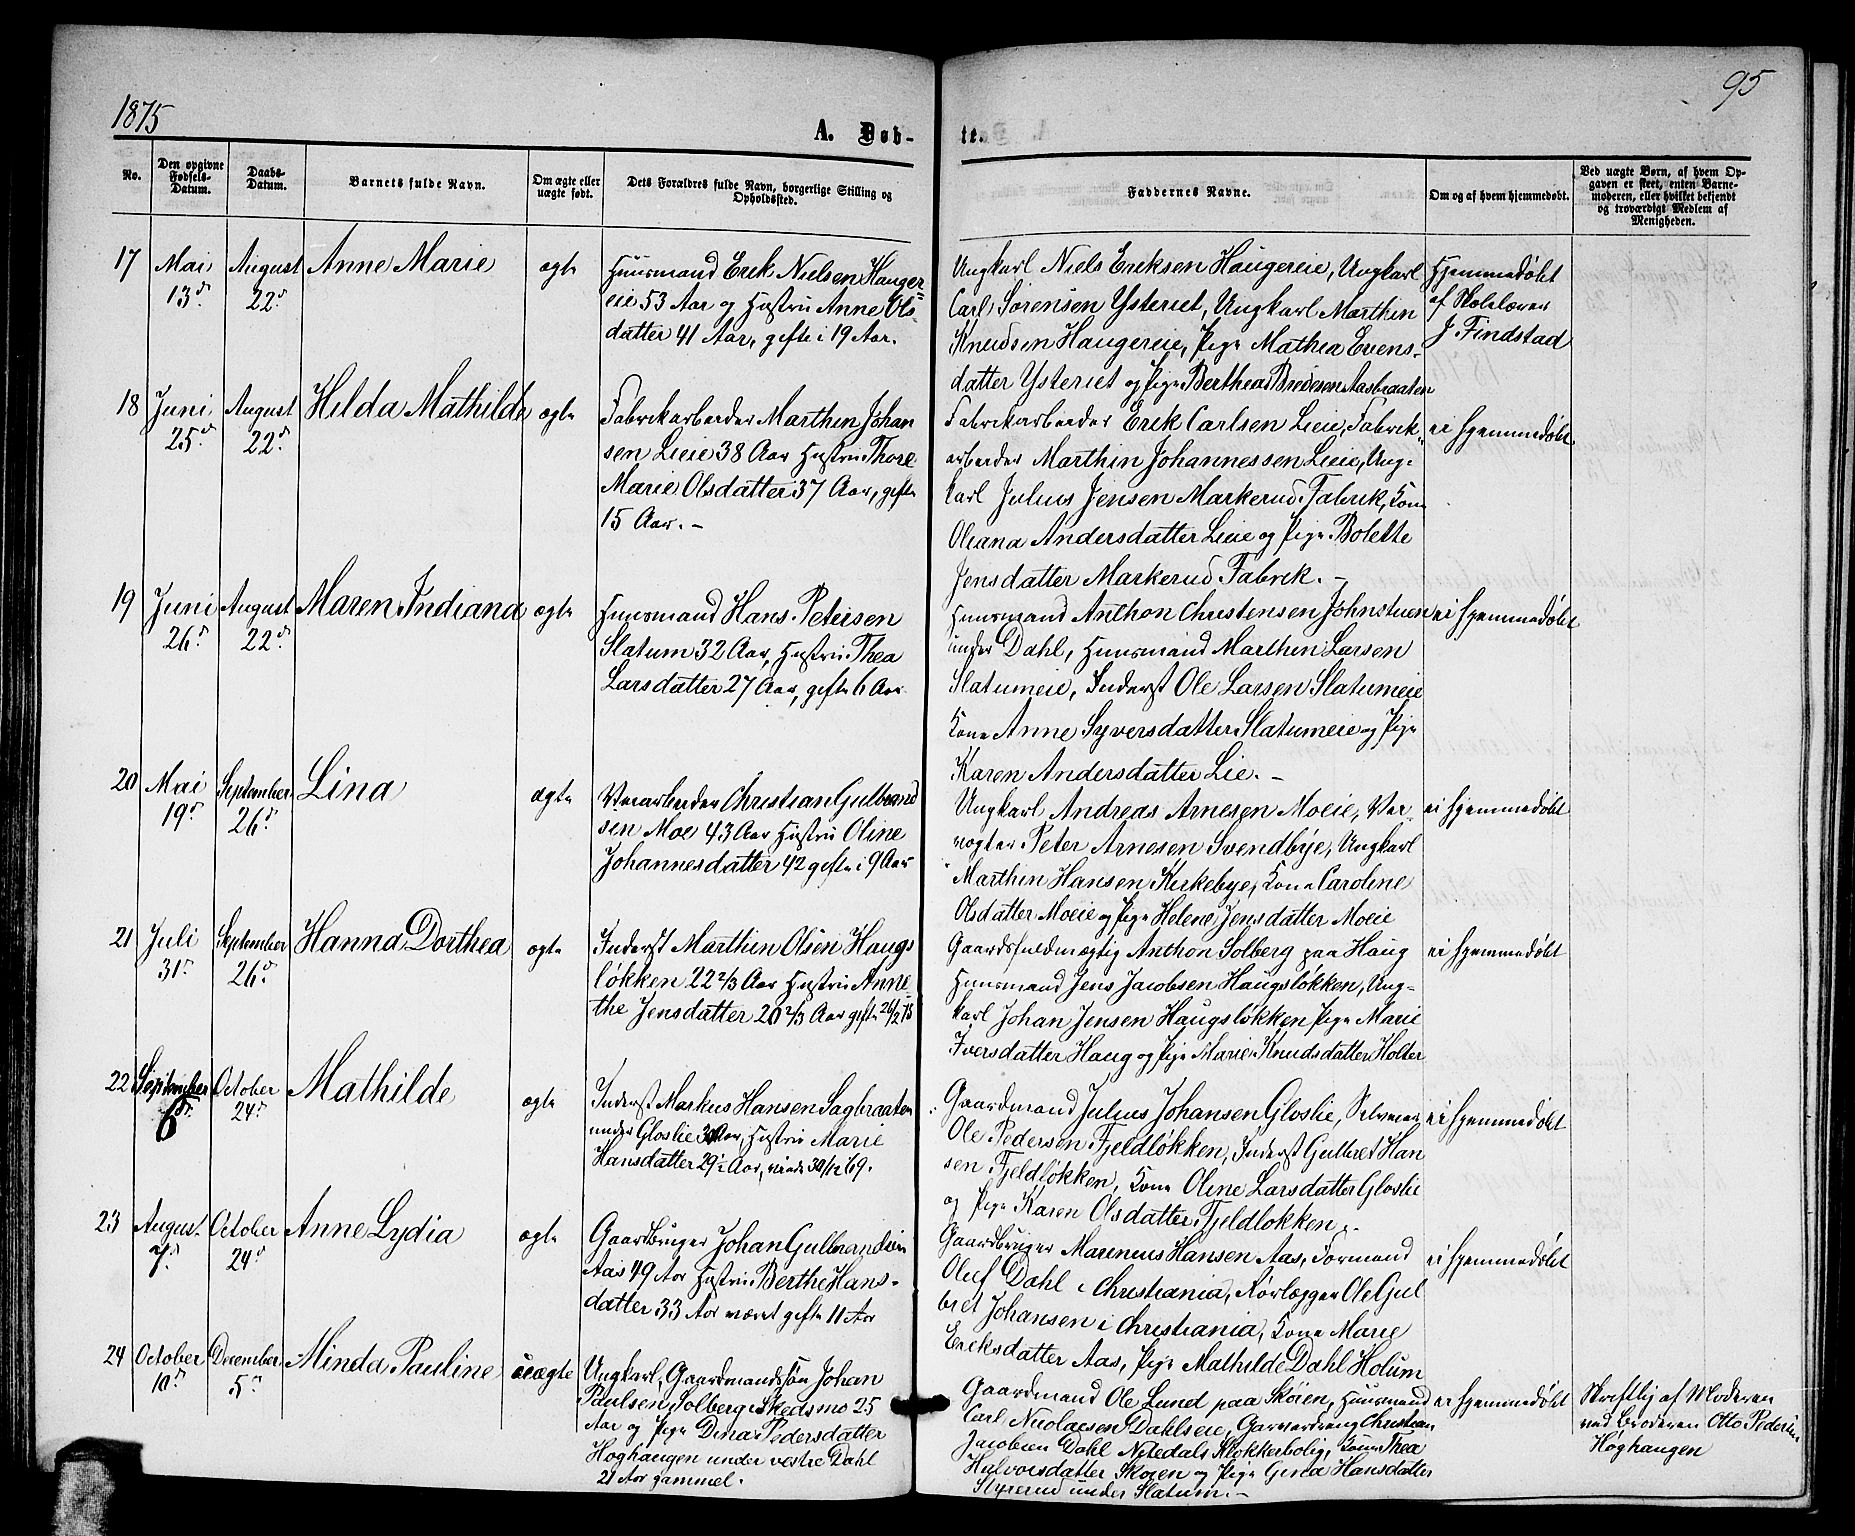 1875
95
A. Døb-
te.
No.
Den opgivne Fødsels-Datum.
Daabs-Datum.
Barnets fulde Navn.
Om ægte eller uægte født.
Dets Forældres fulde Navn, borgerlige Stilling og Opholdssted.
Faddernes Navne.
Om og af hvem hjemmedøbt.
Ved uægte Børn, af hvem Opgaven er skeet, enten Barnemoderen, eller hvilket bekjendt og troværdigt Medlem af Menigheden.
17 Mai 13de August 22de Anne Marie ægte
Huusmand Erik Nielsen Hauger-
eie 53 Aar og Hustru Anne Ols-
datter 41 Aar, gifte i 19 Aar.
Ungkarl Niels Eriksen Haugereie, Ungkarl
Carl Sørensen Ysteriet, Ungkarl Marthin
Knudsen Haugereie, Pige Mathea Evens-
datter Ysteriet og Pige Berthea Bredesen Aasbraaten
Hjemmedøbt
af Skolelærer
J. Findstad
18 Juni 25de August 22de Hilda Mathilde ægte
Fabrikarbeider Marthin Johan
sen Lieie 38 Aar Hustru Thore
Marie Olsdatter 37 Aar, gifte
15 Aar.-
Fabrikarbeider Erik Carlsen Lieie, Fabrik-
arbeider Marthin Johannessen Lieie, Ung-
karl Julius Jensen Markerud Fabrik, Kone
Oleana Andersdatter Lieie og Pige Bolette
Jensdatter Markerud Fabrik.-
ei hjemmedøbt.
19 Juni 26de August 22de Maren Indiana ægte
Huusmand Hans Petersen
Slatum 32 Aar, Hustru Thea
Larsdatter 27 Aar, gifte 6 Aar.
Huusmand Anthon Christensen Johnstuen
under Dahl, Huusmand Marthin Larsen
Slatumeie, Inderst Ole Larsen Slatumeie
Kone Anne Syversdatter Slatumeie og Pige
Karen Andersdatter Lie.-
ei hjemmedøbt
20 Mai 19de September 26de Lina ægte
Veiarbeider Christian Gulbrand
sen Moe 43 Aar Hustru Oline
Johannesdatter 42 gifte i 9 Aar
Ungkarl Andreas Arnesen Moeie, Vei-
vogter Peter Arnesen Svendbye, Ungkarl
Marthin Hansen Kirkebye, Kone Caroline
Olsdatter Moeie og Pige Helene Jensdatter Moeie
ei hjemmedøbt
21 Juli 31te September 26de Hanna Dorthea ægte
Inderst Marthin Olsen Haugs
løkken 22 2/3 Aar Hustru Anne-
the Jensdatter 20 2/3 Aar gifte 26/2 75
Gaardsfuldmægtig Anthon Solberg paa Haug
Huusmand Jens Jacobsen Haugsløkken, Ung-
karl Johan Jensen Haugsløkken Pige Marie
Iversdatter Haug og Pige Marie Knudsdatter Holter
ei hjemmedøbt
22 September 6de October 24de Mathilde ægte
Inderst Markus Hansen Sagbraaten
under Gloslie 30 Aar, Hustru Marie
Hansdatter 29½ Aar, viede 30/12 69.
Gaardmand Julius Johansen Gloslie, Selveier
Ole Pedersen Fjeldløkken, Inderst Gulbret Han
sen Fjeldløkken, Kone Oline Larsdatter Gloslie
og Pige Karen Olsdatter Fjeldløkken.-
ei hjemmedøbt
23 August 7de October 24de Anne Lydia ægte
Gaardbruger Johan Gulbrandsen
Aas 49 Aar Hustru Berthe Hans-
datter 33 Aar været gifte 11 Aar
Gaardbruger Marenius Hansen Aas, Formand
Oluf Dahl i Christiania, Rørlægger Ole Gul
bret Johansen i Christiania, Kone Marie
Eriksdatter Aas, Pige Mathilde Dahl Holum
ei hjemmedøbt
24 October 10de December 5te Minda Pauline uægte
Ungkarl, Gaardmandssøn Johan
Paulsen Solberg i Skedsmo 25
Aar og Pige Dina Pedersdatter
Høghaugen under vestre Dahl
21 Aar gammel.
Gaardmand Ole Lund paa Skøien, Huusmand
Carl Nicolaesen Dahlseie, Garverdreng Christian
Jacobsen Dahl Nitedals Klokkerbolig, Kone Thea
Halvorsdatter Skøien og Pige Gina Hansdatter
Styrerud under Slatum.-
ei hjemmedøbt
Skriftlig af Moderen
ved Broderen Otto Pedersen
Høghaugen